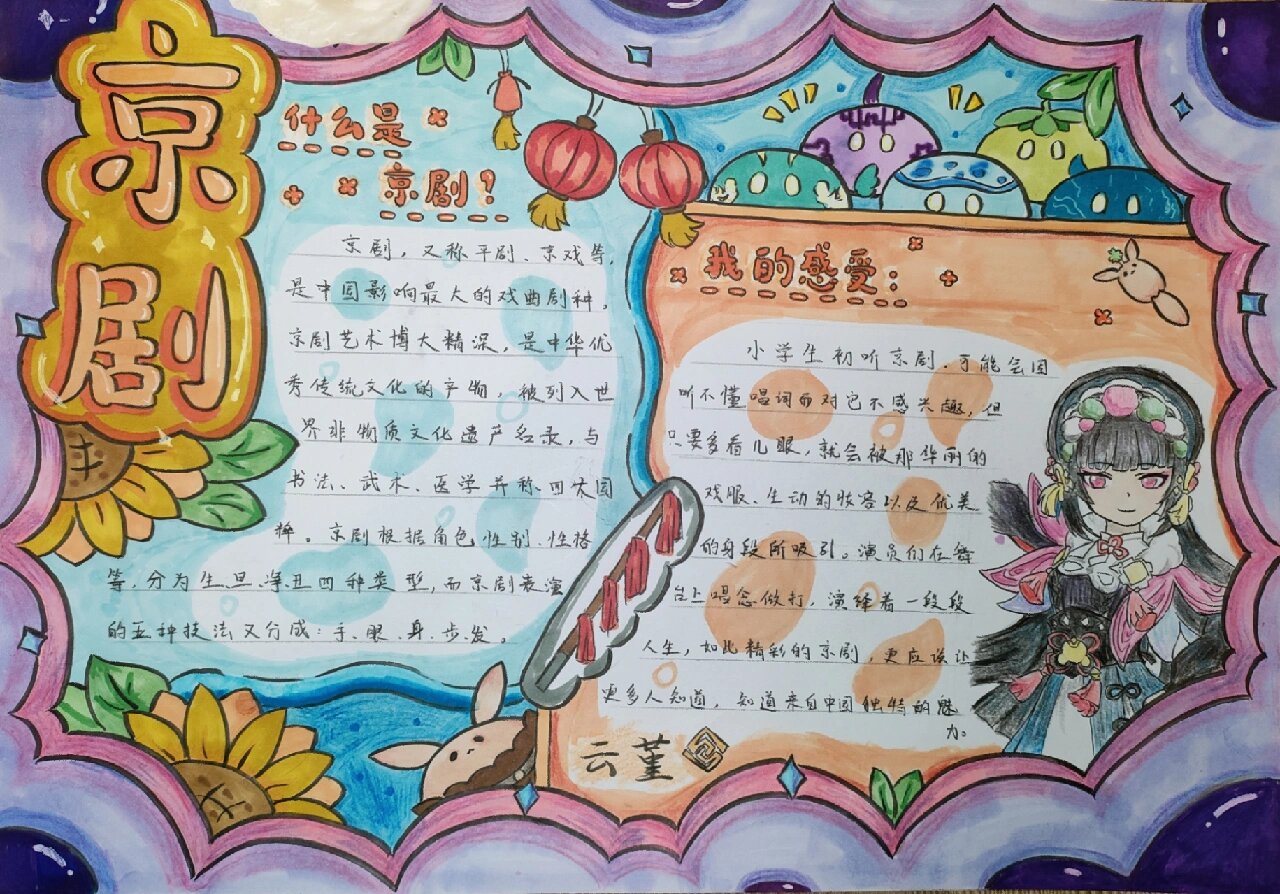 京剧
什么是
京剧？
京剧，又称平剧、京戏等，
是中国影响最大的戏曲剧种，
京剧艺术博大精深，是中华优
秀传统文化的产物，被列入世
界非物质文化遗产名录，与
书法、武术、医学并称四大国
粹。京剧根据角色性别、性格
等，分为生旦净丑四种类型，而京剧表演
的五种技法又分成：手、眼、身、步、发。
我的感受：
小学生初听京剧，可能会因
听不懂唱词而对它不感兴趣，但
只要多看几眼，就会被那华丽的
戏服、生动的妆容以及优美
的身段所吸引。演员们在舞
台上唱念做打，演绎着一段段
人生，如此精彩的京剧，更应该让
更多人知道，知道来自中国独特的魅
力。
云堇